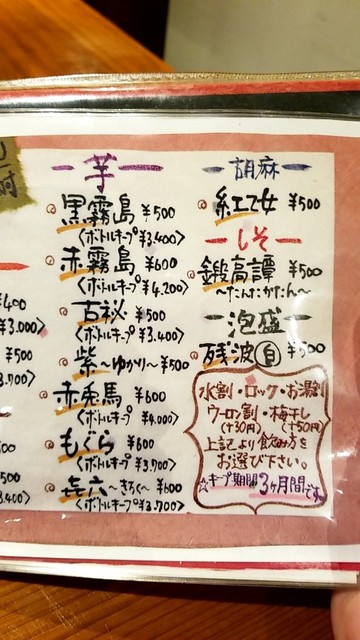 芋
黒霧島 ¥500
〈ボトルキープ ¥3.400〉
赤霧島 ¥600
〈ボトルキープ ¥4.200〉
古秘 ¥500
〈ボトルキープ ¥3.400〉
紫〜ゆかり〜 ¥500
赤兎馬 ¥600
〈ボトルキープ ¥4.000〉
もぐら ¥600
〈ボトルキープ ¥3,700〉
㐂六〜きろく〜 ¥600
〈ボトルキープ ¥3.700〉
胡麻
紅乙女 ¥500
しそ
鍛高譚 ¥500
〜たんたかたん〜
泡盛
残波 白 ¥500
水割・ロック・お湯割
ウーロン割・梅干し
(+30円) (+50円)
上記より飲み方を
お選び下さい。
☆キープ期間3ヶ月間です
¥400
¥3.000〉
¥500
¥500